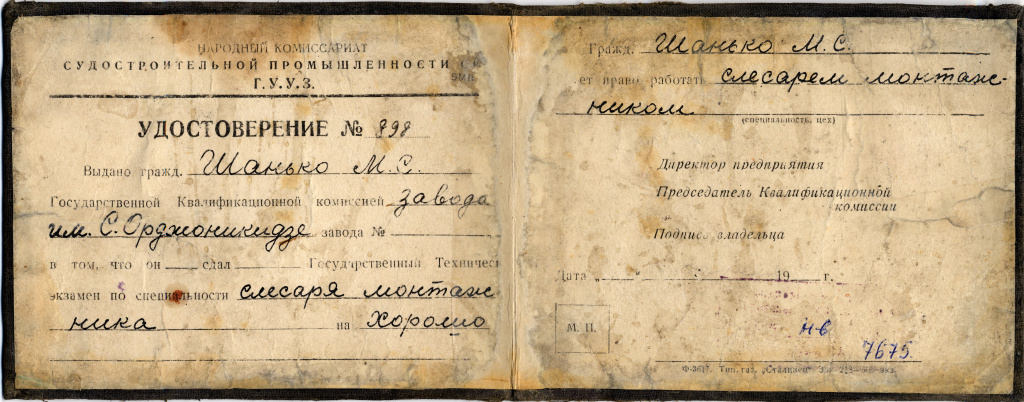 НАРОДНЫЙ КОМИССАРИАТ
СУДОСТРОИТЕЛЬНОЙ ПРОМЫШЛЕННОСТИ
Г.У.У.З.
УДОСТОВЕРЕНИЕ № 898
Выдано гражд. Шанько М. С.
Государственной Квалификационной комиссией завода
им. С. Орджоникидзе завода №
в том, что он сдал Государственный Техничес
экзамен по специальности слесаря монтаж
ника на хорошо
Гражд. Шанько М. С.
ет право работать слесарем монтаж-
ником
(специальность, цех)
Директор предприятия
Председатель Квалификационной
комиссии
Подпись владельца
Дата „ 19 г.
М. П.
нв
7675
Ф-3617. Тип. газ. „Сталинец"